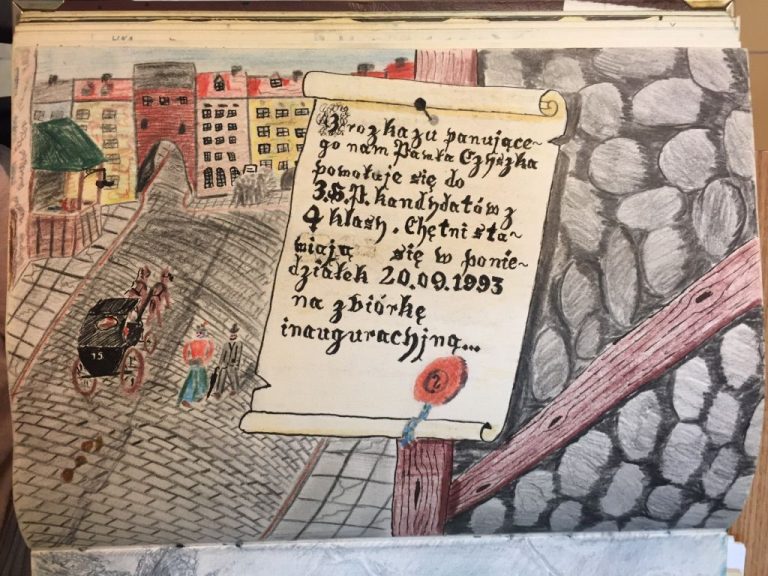 Z rozkazu panujące~
go nam Pawła Czyszka
powołuje się do
3.S.P. kandydatów z
4 klasy. Chętni sta~
wiają się w ponie~
działek 20.09.1993
na zbiórkę
inauguracyjną...
2
15